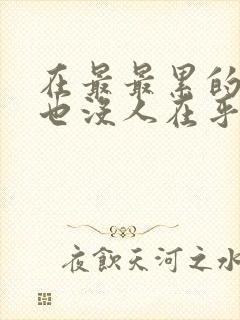 在最最累的
也没人在乎
夜飲天河之水